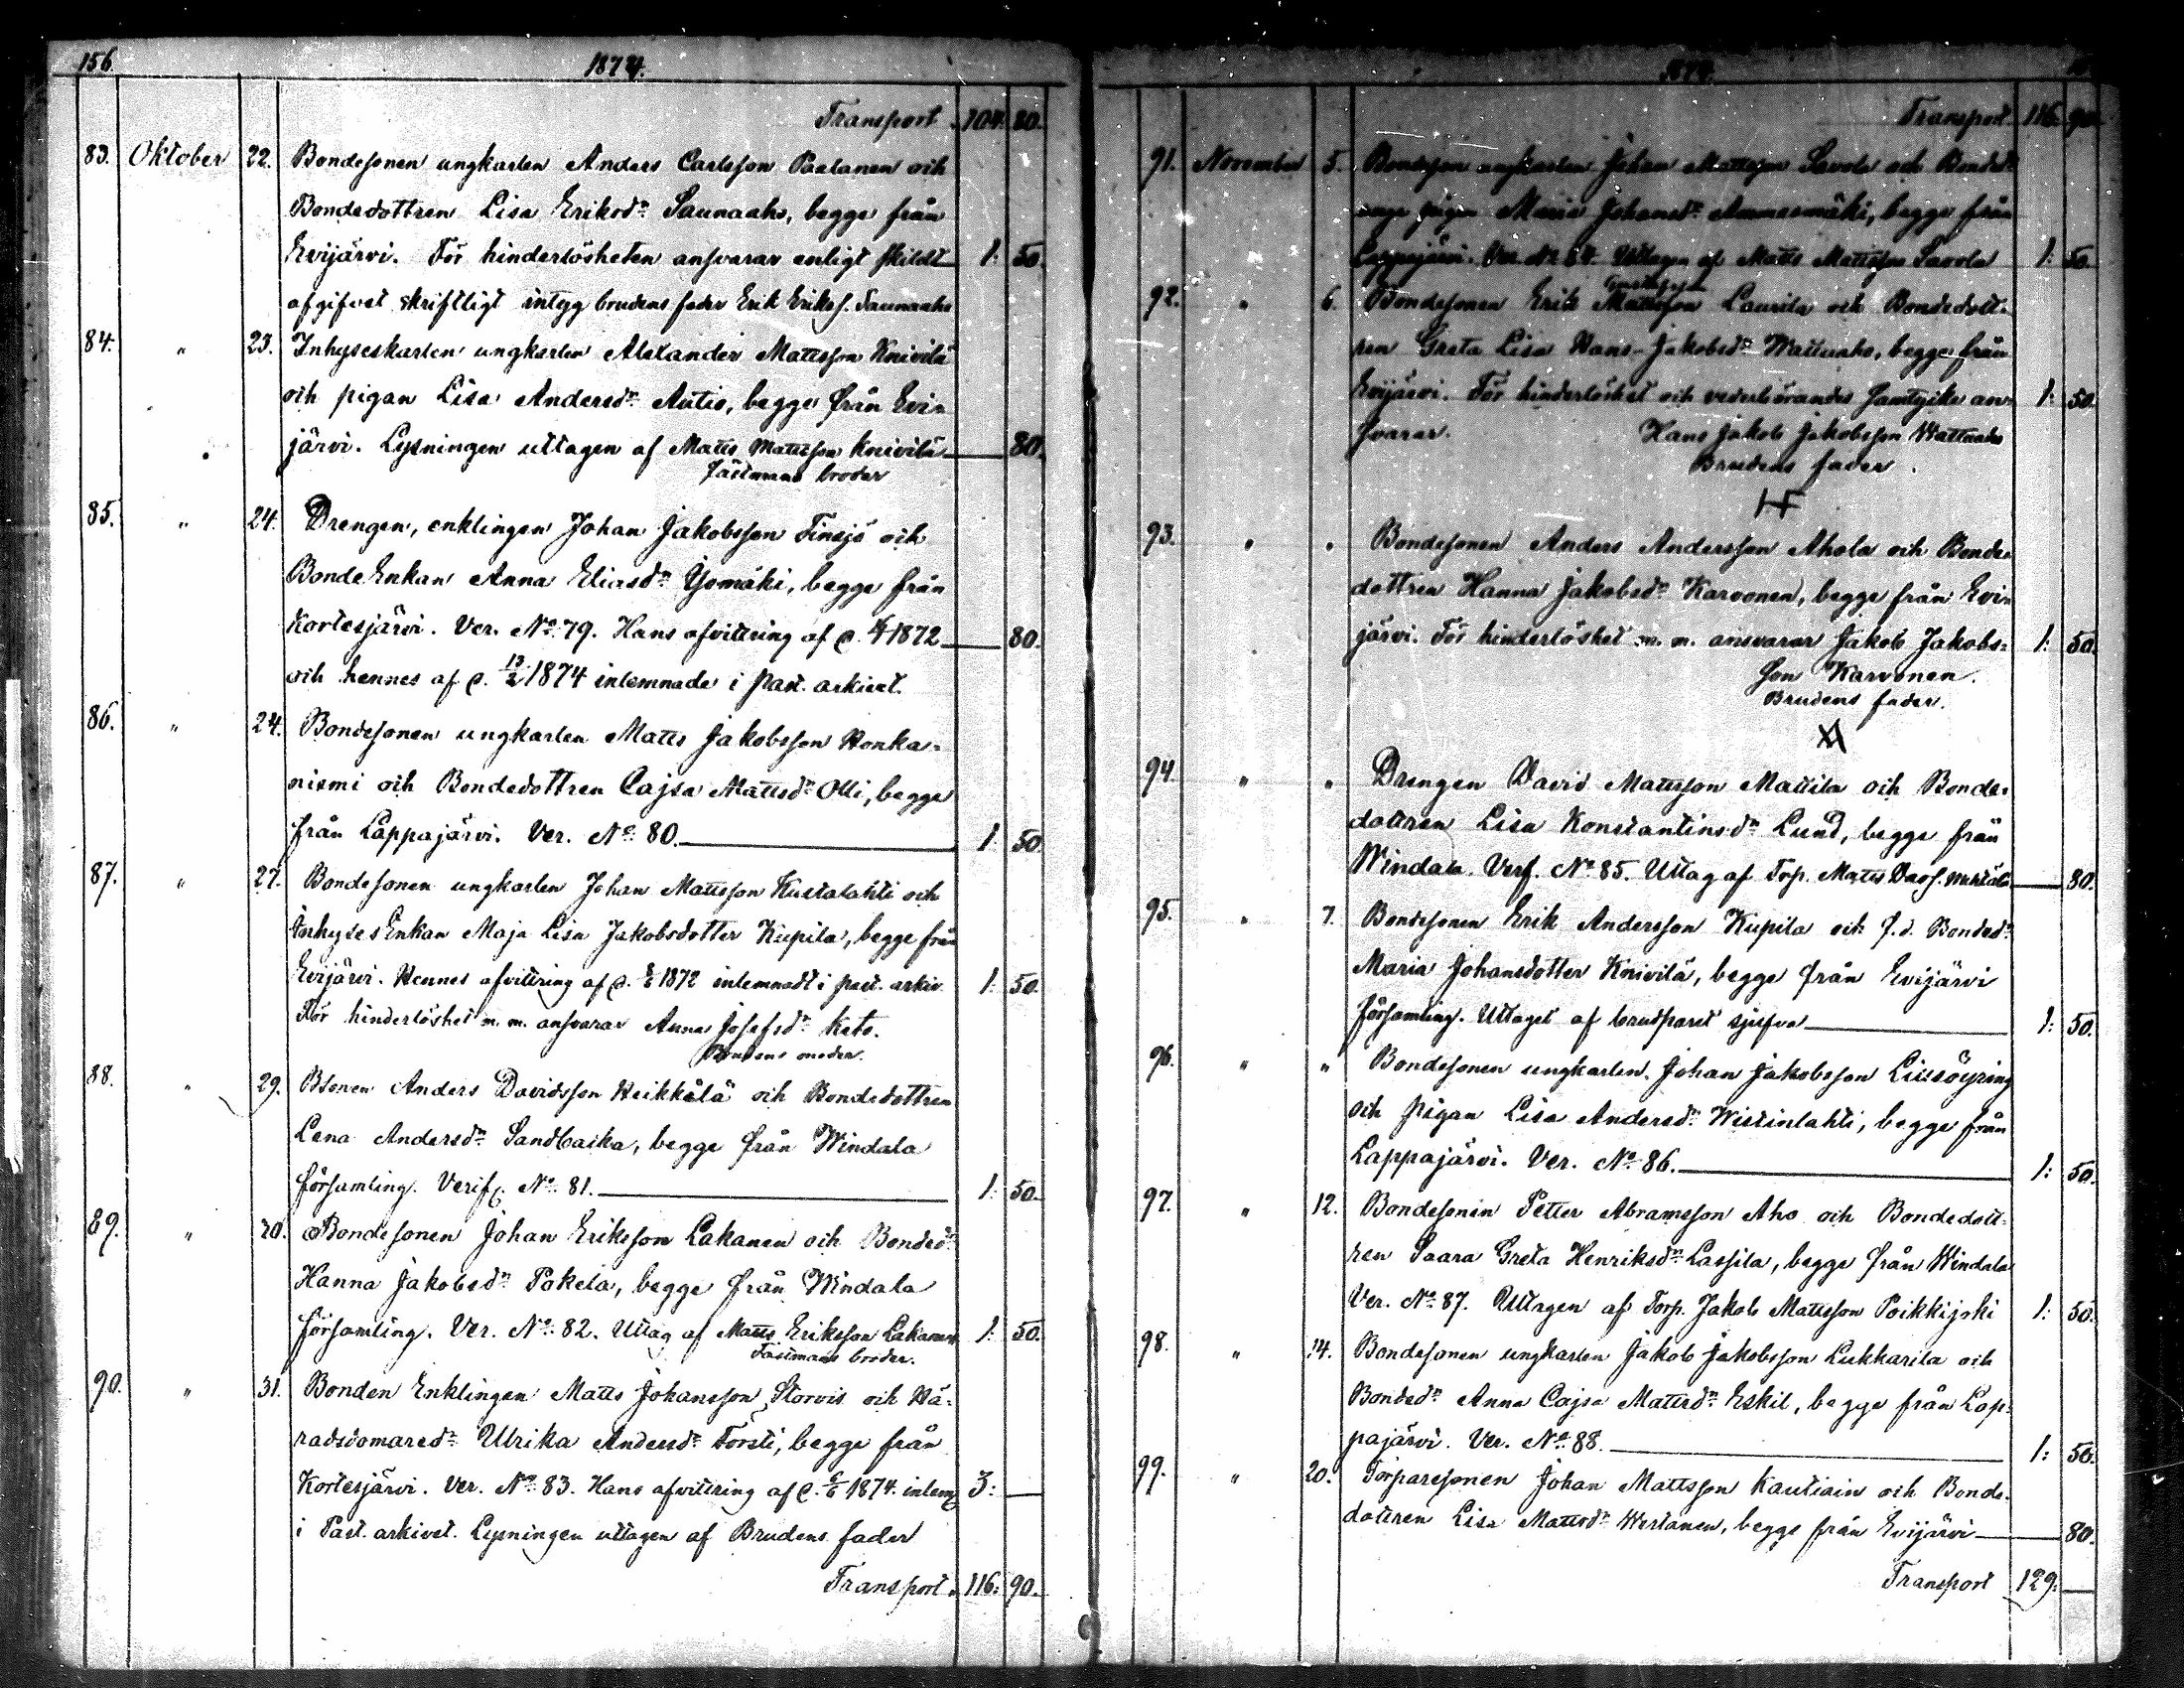 156.
1874.
Transport. 104. 80.
83. Oktober 22. Bondesonen ungkarlen Anders Carlsson Paalanen och
Bondedottren Lisa Eriksdr Saunaaho, begge från
Evijärvi. För hinderlösheten ansvarar enligt skildt 1: 50.
afgifvet skriftligt intyg brudens fader Erik Eriks. Saunaaho
84. " 23. Inhyseskarlen ungkarlen Alexander Mattsson Knivilä
och pigan Lisa Andersdr Autio, begge från Evi=
järvi. Lysningen uttagen af Matts Mattsson Knivilä 80.
fästmans broder
85. " 24. Drengen, enklingen Johan Jakobsson Finsjö och
BondeEnkan Anna Eliasdr Yömäki, begge från
Kortesjärvi. Ver. No 79. Hans afvittring af d. 1872 80.
och hennes af d. 13/2 1874 inlemnade i past. arkivet.
86. " 24. Bondesonen ungkarlen Matts Jakobsson Honka=
niemi och Bondedottren Cajsa Mattsdr Olli, begge
från Lappajärvi. Ver. No 80. 1: 50.
87. " 27. Bondesonen ungkarlen Johan Mattsson Kustalahti och
InhysesEnkan Maja Lisa Jakobsdotter Kiipilä, begge från
Evijärvi. Hennes afvittring af d. 1872 inlemnadt i past. arkiv. 1: 50.
För hinderlöshet m. m. ansvarar Anna Josefsdr Keto.
Brudens moder.
88. " 29. Bsonen Anders Davidsson Heikkilä och Bondedottren
Lena Andersdr Sandbacka, begge från Windala
församling. Verif. No 81. 1: 50.
89. " 30. Bondesonen Johan Eriksson Lakanen och Bondedr
Hanna Jakobsdr Pokela, begge från Windala
församling. Ver. No 82. Uttag af Matts Eriksson Lakanen 1: 50.
Fästmans broder.
90. " 31. Bonden Enklingen Matts Johansson Storvis och Hä=
radsdomaredr Ulrika Andersdr Försti, begge från
Kortesjärvi. Ver. No 83. Hans afvittring af d. 1874. inlemn 3: —
i Past. arkivet. Lysningen uttagen af Brudens fader
Transport. 116: 90.
1874.
Transport 116. 90.
91. November 5. Bondeson ungkarlen Johan Mattsson Savola och Bonded
pigan Maria Johansdr Ammesmäki, begge från
Lappajärvi. Ver. No 84. Uttagen af Matts Mattsson Savola 1: 50.
Gustafsson
92. " 6. Bondesonen Erik Mattsson Laurila och Bondedott=
ren Greta Lisa Hans-Jakobsdr Wattuaho, begge från
Evijärvi. För hinderlöshet och vederbörandes samtycke an= 1: 50.
svarar. Hans Jakob Jakobsson Wattuaho
Brudens fader.
93. " " Bondesonen Anders Andersson Ahola och Bonde=
dottren Hanna Jakobsdr Karvonen, begge från Evi=
järvi. För hinderlöshet m. m. ansvarar Jakob Jakobs= 1: 50.
son Karvonen.
Brudens fader.
94. " " Drengen David Mattsson Mattila och Bonde=
dottren Lisa Konstantinsdr Lund, begge från
Windala. Verf. No 85. Uttag af Torp. Matts Davs. Mattila 80.
95. " 7. Bondesonen Erik Andersson Kiipilä och f.d. Bondedr
Maria Johansdotter Knivilä, begge från Evijärvi
församling. Uttaget af brudparet sjelfva 1: 50.
96. " " Bondesonen ungkarlen Johan Jakobsson Liisöyring
och pigan Lisa Andersdr Wistinlahti, begge från
Lappajärvi. Ver. No 86. 1: 50.
97. " 12. Bondesonen Petter Abramsson Aho och Bondedott=
ren Saara Greta Henriksdr Lassila, begge från Windala
Ver. No 87. Uttagen af Torp. Jakob Mattsson Poikkijoki 1: 50.
98. " 14. Bondesonen ungkarlen Jakob Jakobsson Lukkarila och
Bondedr Anna Cajsa Mattsdr Eskil, begge från Lap=
pajärvi. Ver. No 88. 1: 50.
99. " 20. Torparesonen Johan Mattsson Kautiain och Bonde=
dottren Lisa Mattsdr Wertanen, begge från Evijärvi 80.
Transport 129: —